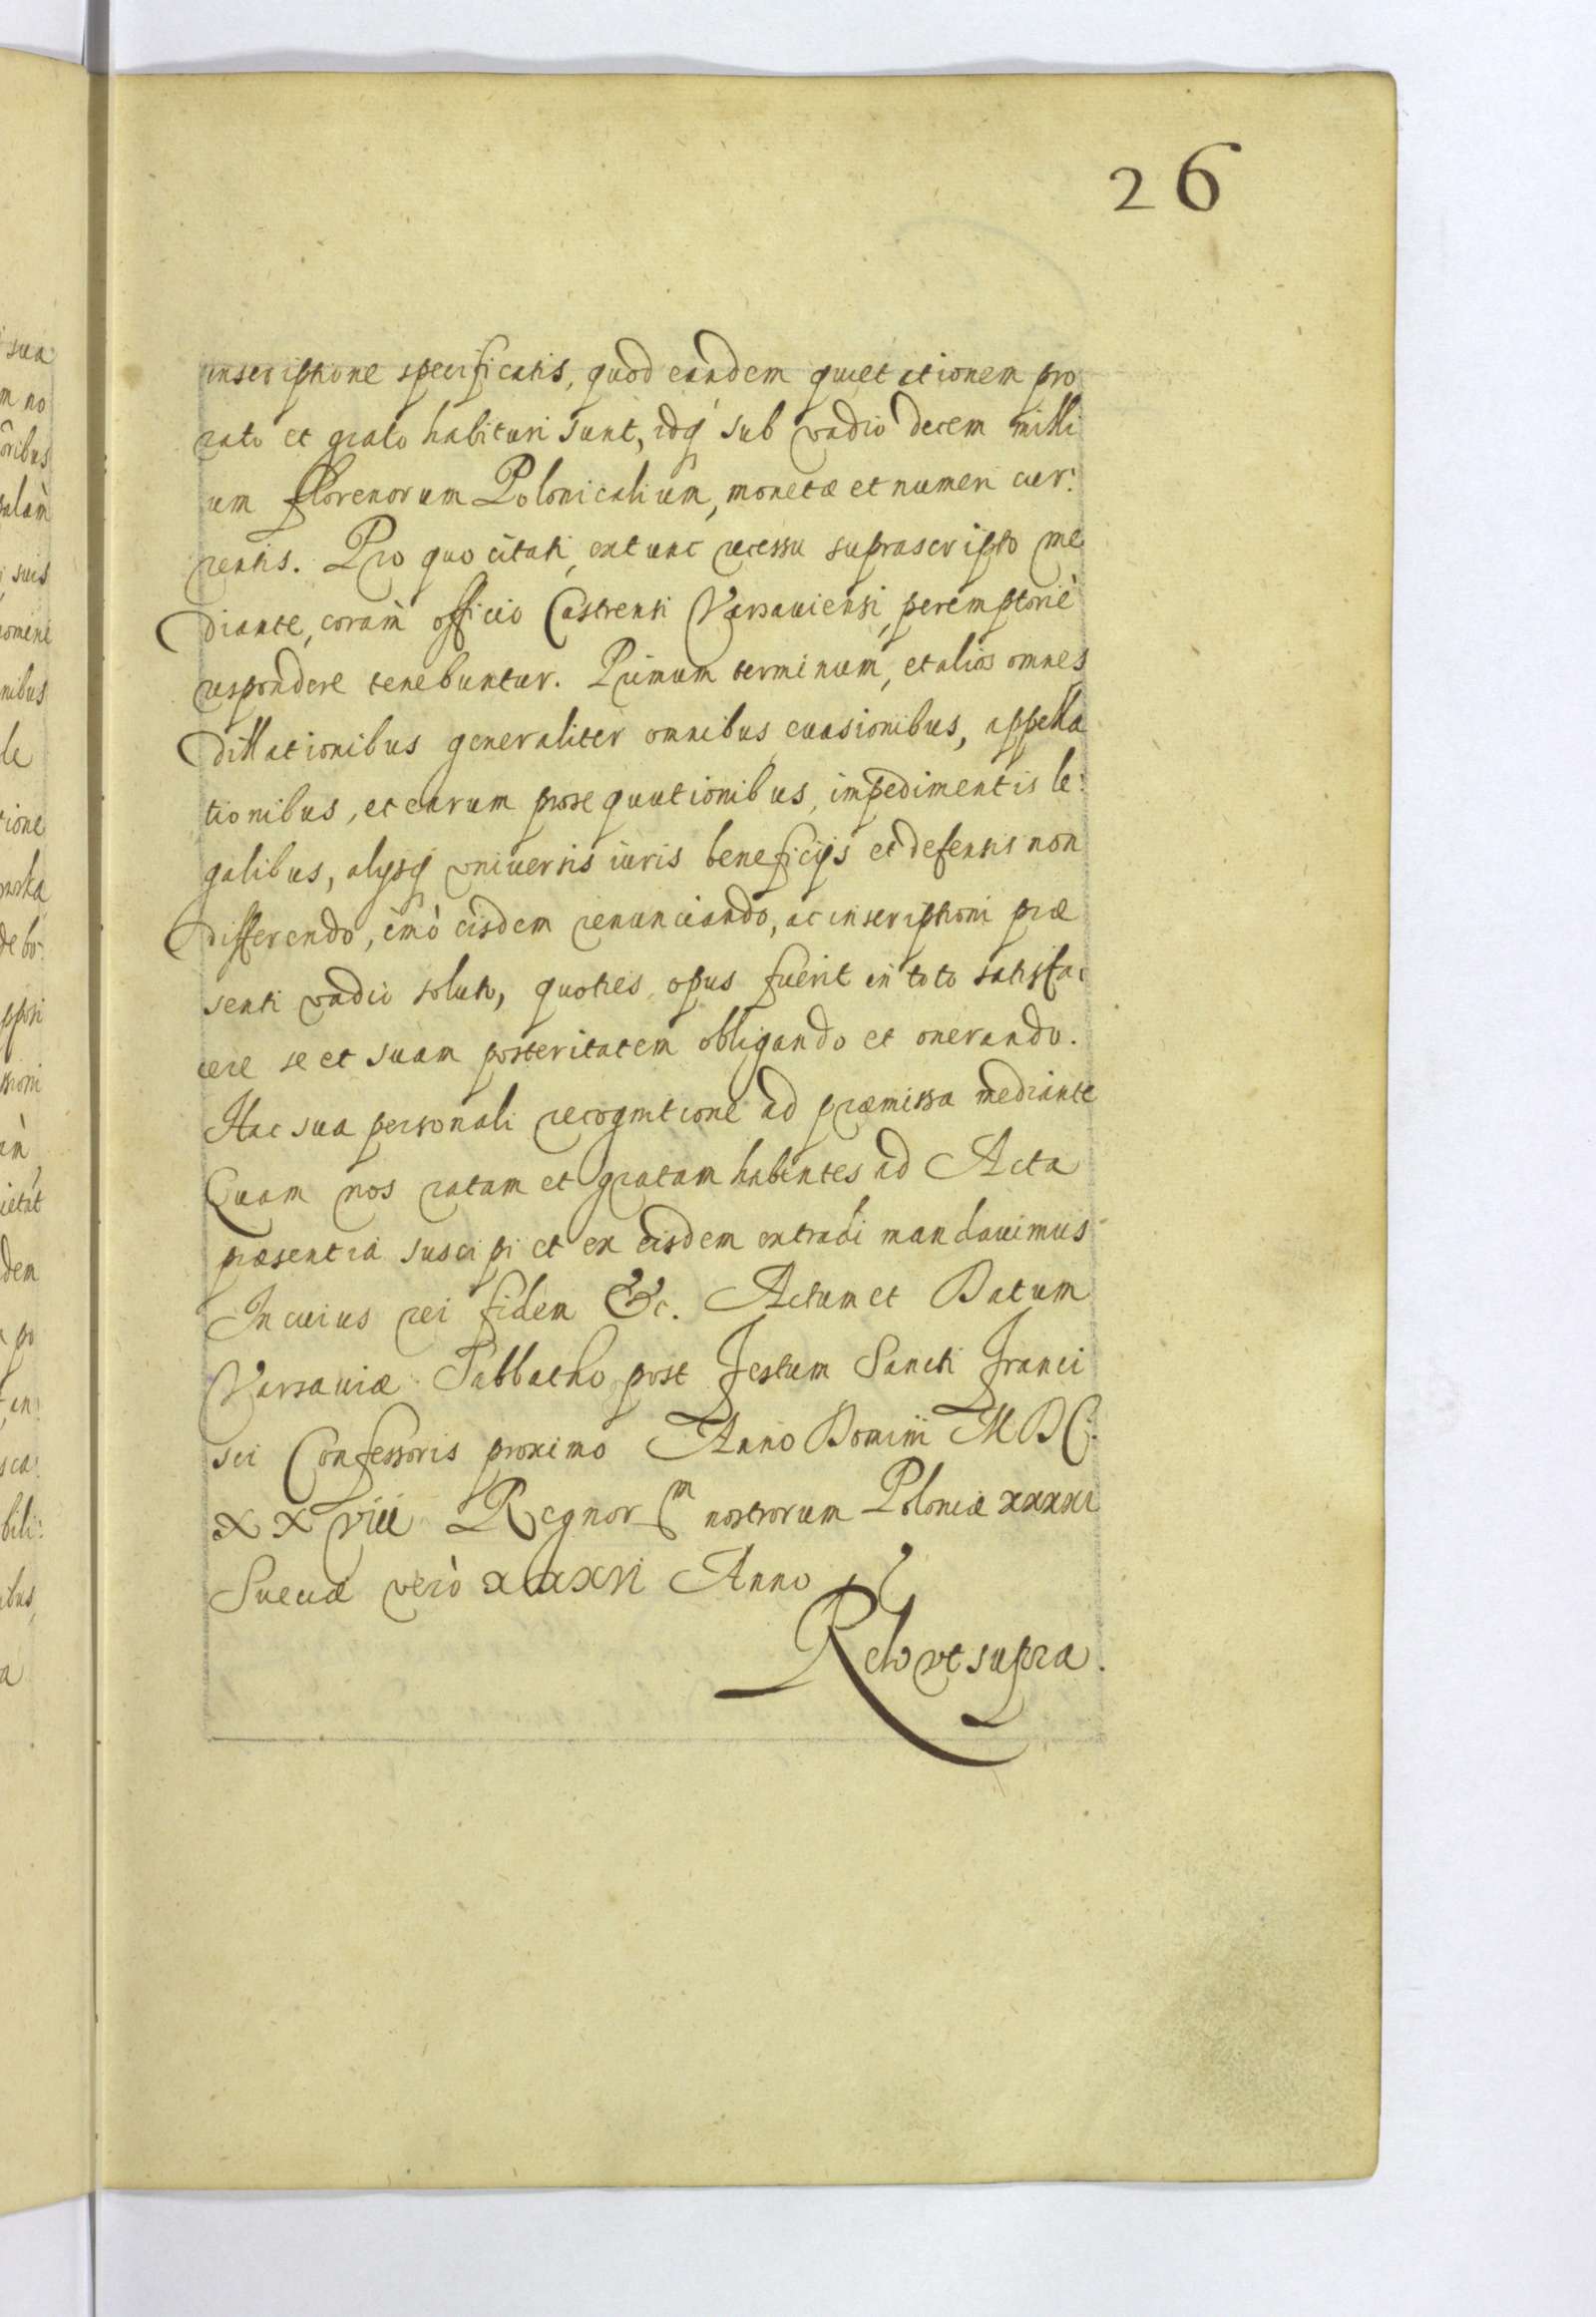 26
inscriptione specificatis, quod eandem quietationem pro
rato et grato habituri sunt, idq́ sub vadio decem milli
um florenorum Polonicalium, monetæ et numeri cur:
rentis. Pro quo citati, extunc recessu suprascripto me
diante, coram̀ officio Castrensi Varsauiensi, peremptoriè
respondere tenebuntur. Primum terminum, et alios omnes
dillationibus generaliter omnibus euasionibus, appella
tionibus, et earum prosequutionibus, impedimentis le:
galibus, alijsq́ vniuersis iuris beneficijs et defensis non
differendo, imò eisdem renunciando, ac inscriptioni præ
senti vadio soluto, quoties opus fuerit in toto satisfa:
cere se et suam posteritatem obligando et onerando.
Hac sua personali recognitione ad præmissa mediante
Quam nos ratam et gratam habentes ad Acta
præsentia suscipi et ex eisdem extradi mandauimus
In cuius rei fidem &c. Actum et Datum
Varsauiæ Sabbatho post Festum Sancti Franci
sci Confessoris proximo Anno Domini MDC:
xxviii Regnorm nostrorum Poloniæ xxxxi
Sueciæ verò xxxvi Anno
Relo vt supra.
sua
m no
oribus
salam̀
suis
nomine
nibus
le
tione
de bo:
ietat
dem
po
in:
sca:
bili:
ibus,
a